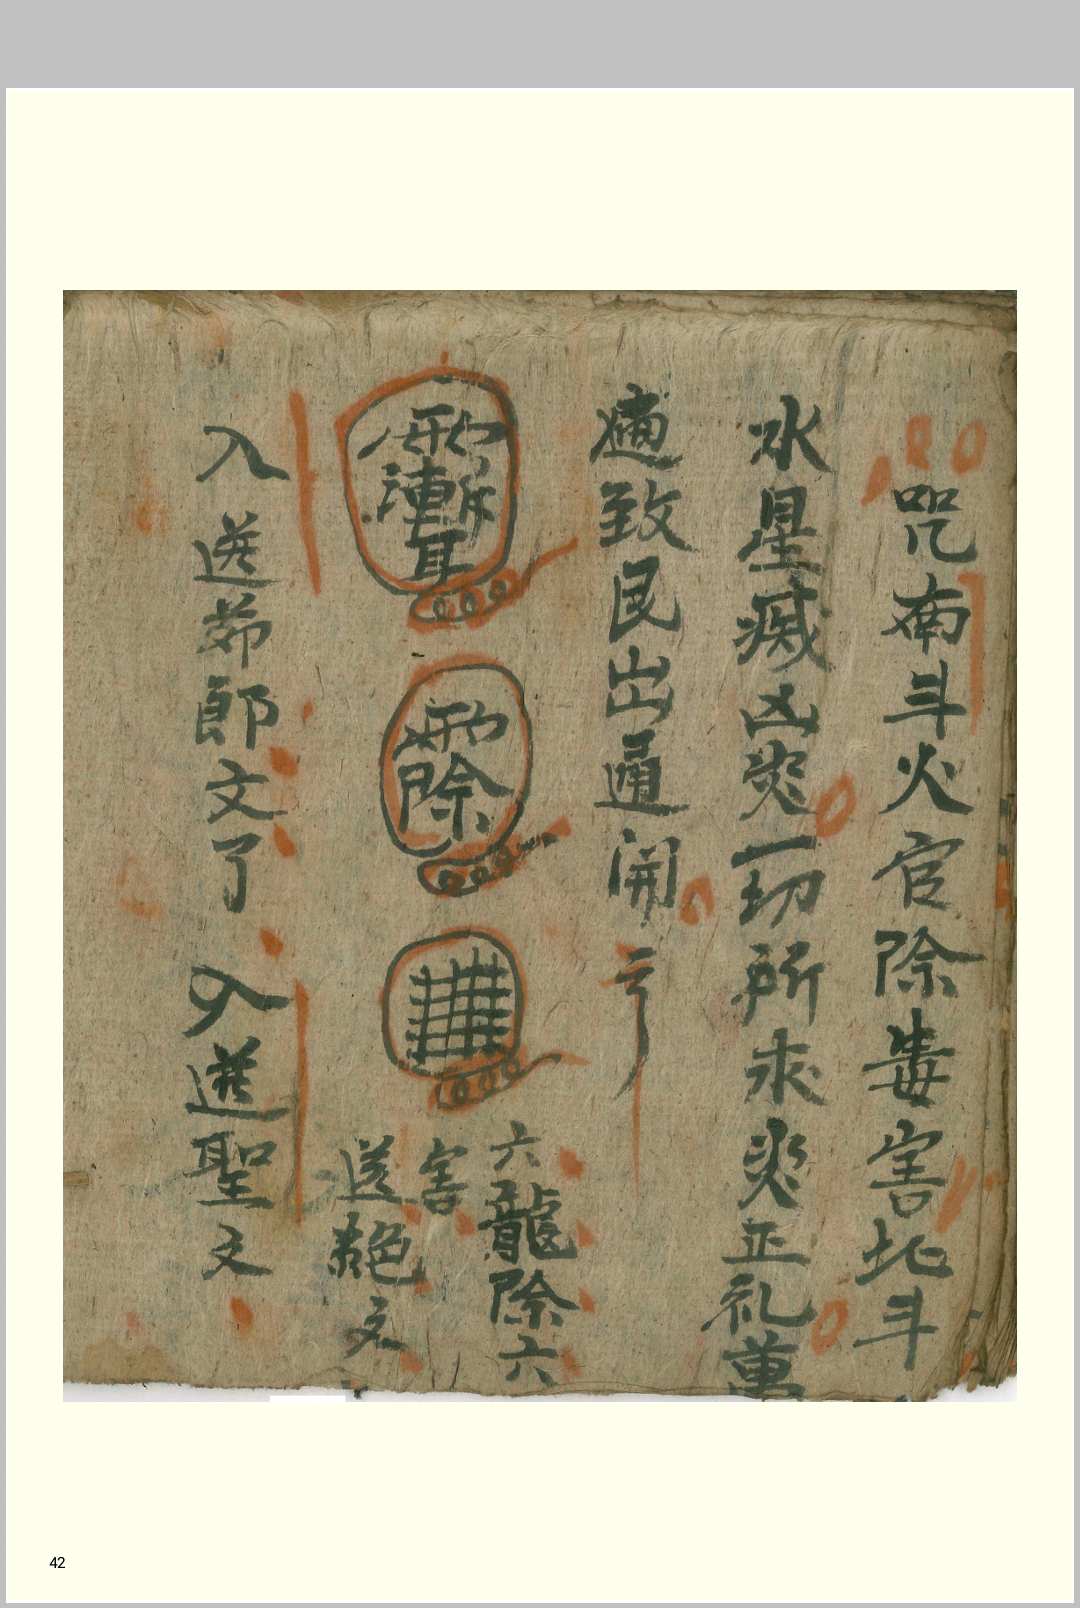 咒南斗火官除毒害北斗
水星滅凶災一切所求災正礼萬
通致民出通開
六龍除六
害
送絕文
入送茆郎文了 入送聖文
42